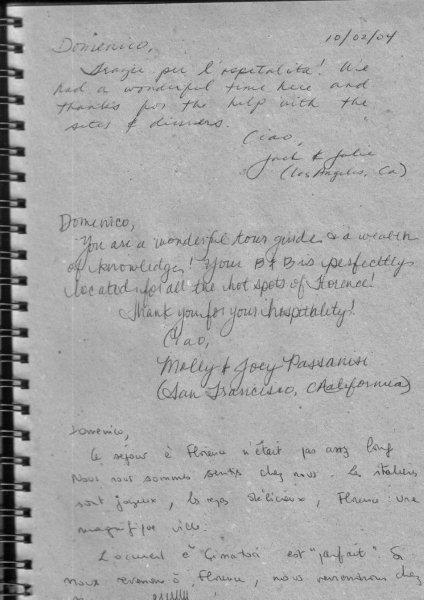 Domenico, 10/02/04
Grazie per l'ospitalita! We
had a wonderful time here and
thanks for the help with the
sites & dinners.
Ciao,
Jack & Julie
(Los Angeles, Ca)
Domenico,
You are a wonderful tour guide & a wealth
of knowledge! Your B&B is perfectly
located for all the hot spots of Florence!
Thank you for your hospitality!
Ciao,
Molly & Joey Passanisi
(San Francisco, CAalifornia)
Domenico,
Le séjour à Florence n'était pas assez long
Nous nous sommes sentis chez nous. Les italiens
sont joyeux, les repas délicieux, Florence une
magnifique ville.
L'accueil è "parfait". Si
nous revenons à Florence, nous reviendrons chez